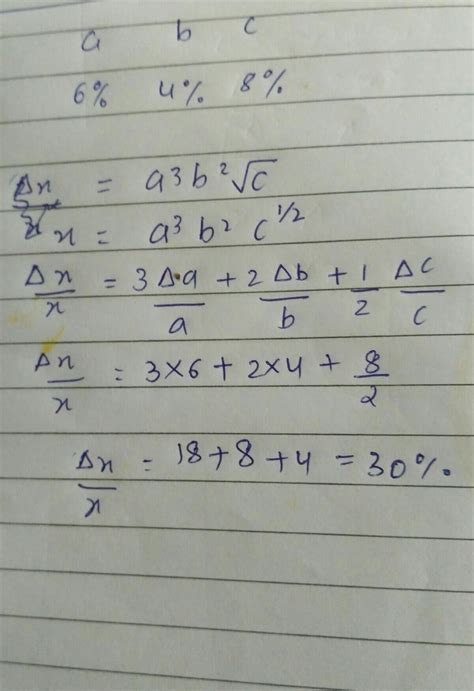 a b c
6% 4% 8%
= a³b²√c
x = a³ b² c^1/2
Δx/x = 3 Δa/a + 2 Δb/b + 1/2 Δc/c
Δx/x = 3×6 + 2×4 + 8/2
Δx/x = 18+8+4 = 30%.